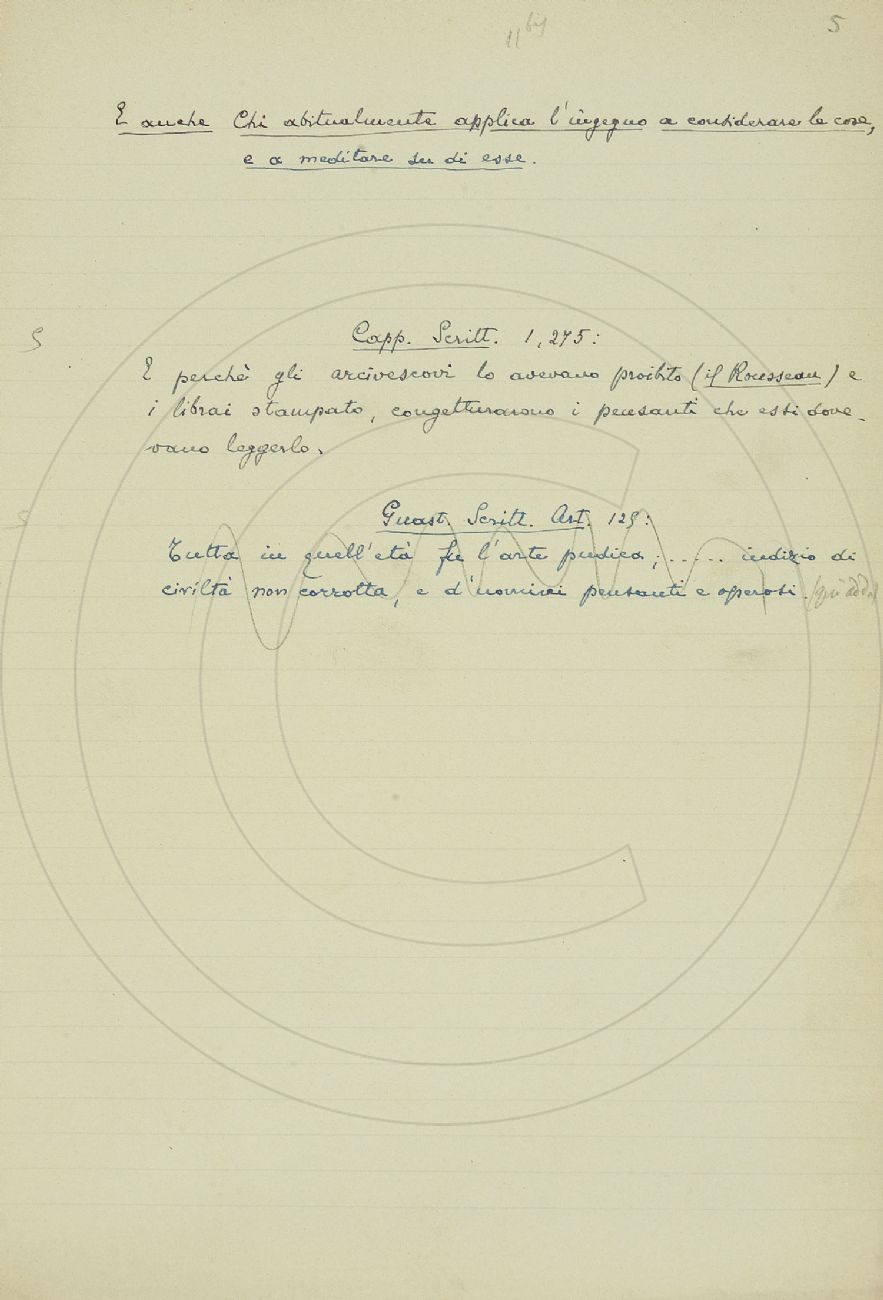 11 bis
5
E anche Chi abitualmente applica l'ingegno a considerare le cose,
e a meditare su di esse.
S
Capp. Scritt. 1, 275:
E perchè gli arcivescovi lo avevano proibito (il Rousseau) e
i librai stampato, congetturarono i pensanti che essi dove-
vano leggerlo.
S
Guast. Scritt. Art. 129:
Tutta in quell'età fu l'arte pudica; ..... indizio di
civiltà non corrotta, e d'uomini pensanti e operosi. (qui add.)